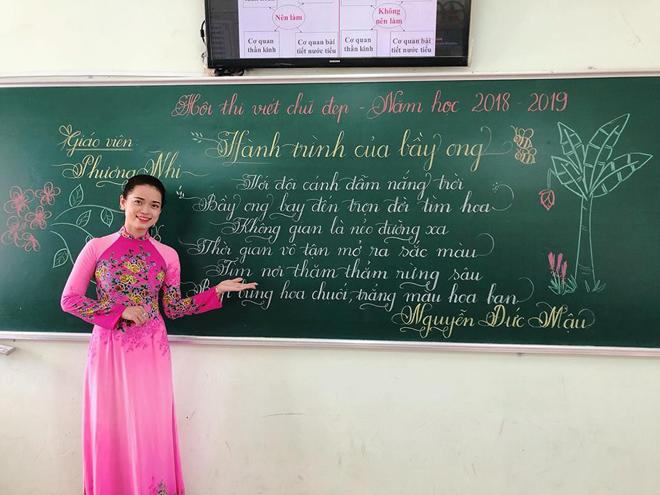 Nên làm
Không nên làm
Cơ quan thần kinh
Cơ quan bài tiết nước tiểu
Cơ quan thần kinh
Cơ quan bài tiết nước tiểu
Hội thi viết chữ đẹp - Năm học 2018 - 2019
Giáo viên
Phương Nhi
Hành trình của bầy ong
Với đôi cánh đẫm nắng trời
Bầy ong bay đến trọn đời tìm hoa
Không gian là nẻo đường xa
Thời gian vô tận mở ra sắc màu
Tìm nơi thăm thẳm rừng sâu
Bập bùng hoa chuối, trắng màu hoa ban
Nguyễn Đức Mậu